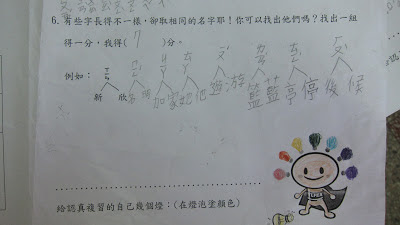 6. 有些字長得不一樣，卻取相同的名字耶！你可以找出他們嗎？找出一組
得一分，我得( 7 )分。
例如：
新 欣 名 加 家 她 他 遊 游 籃 藍 亭 停 後 候
給認真複習的自己幾個燈：(在燈泡塗顏色)